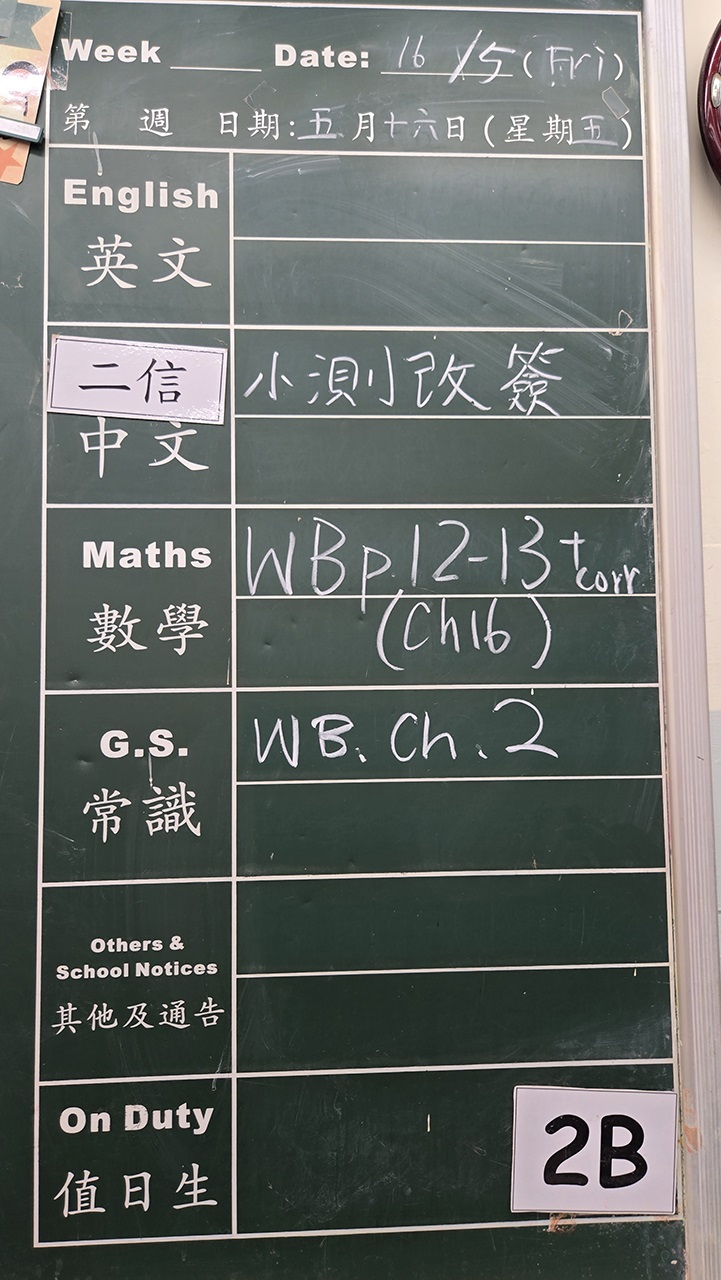 Week ____ Date: 16/5 (Fri)
第 週 日期:五月十六日(星期五)
English
英文
二信 小測改簽
中文
Maths WBp.12-13 + corr
數學 (Ch16)
G.S. WB. Ch. 2
常識
Others &
School Notices
其他及通告
On Duty
值日生
2B